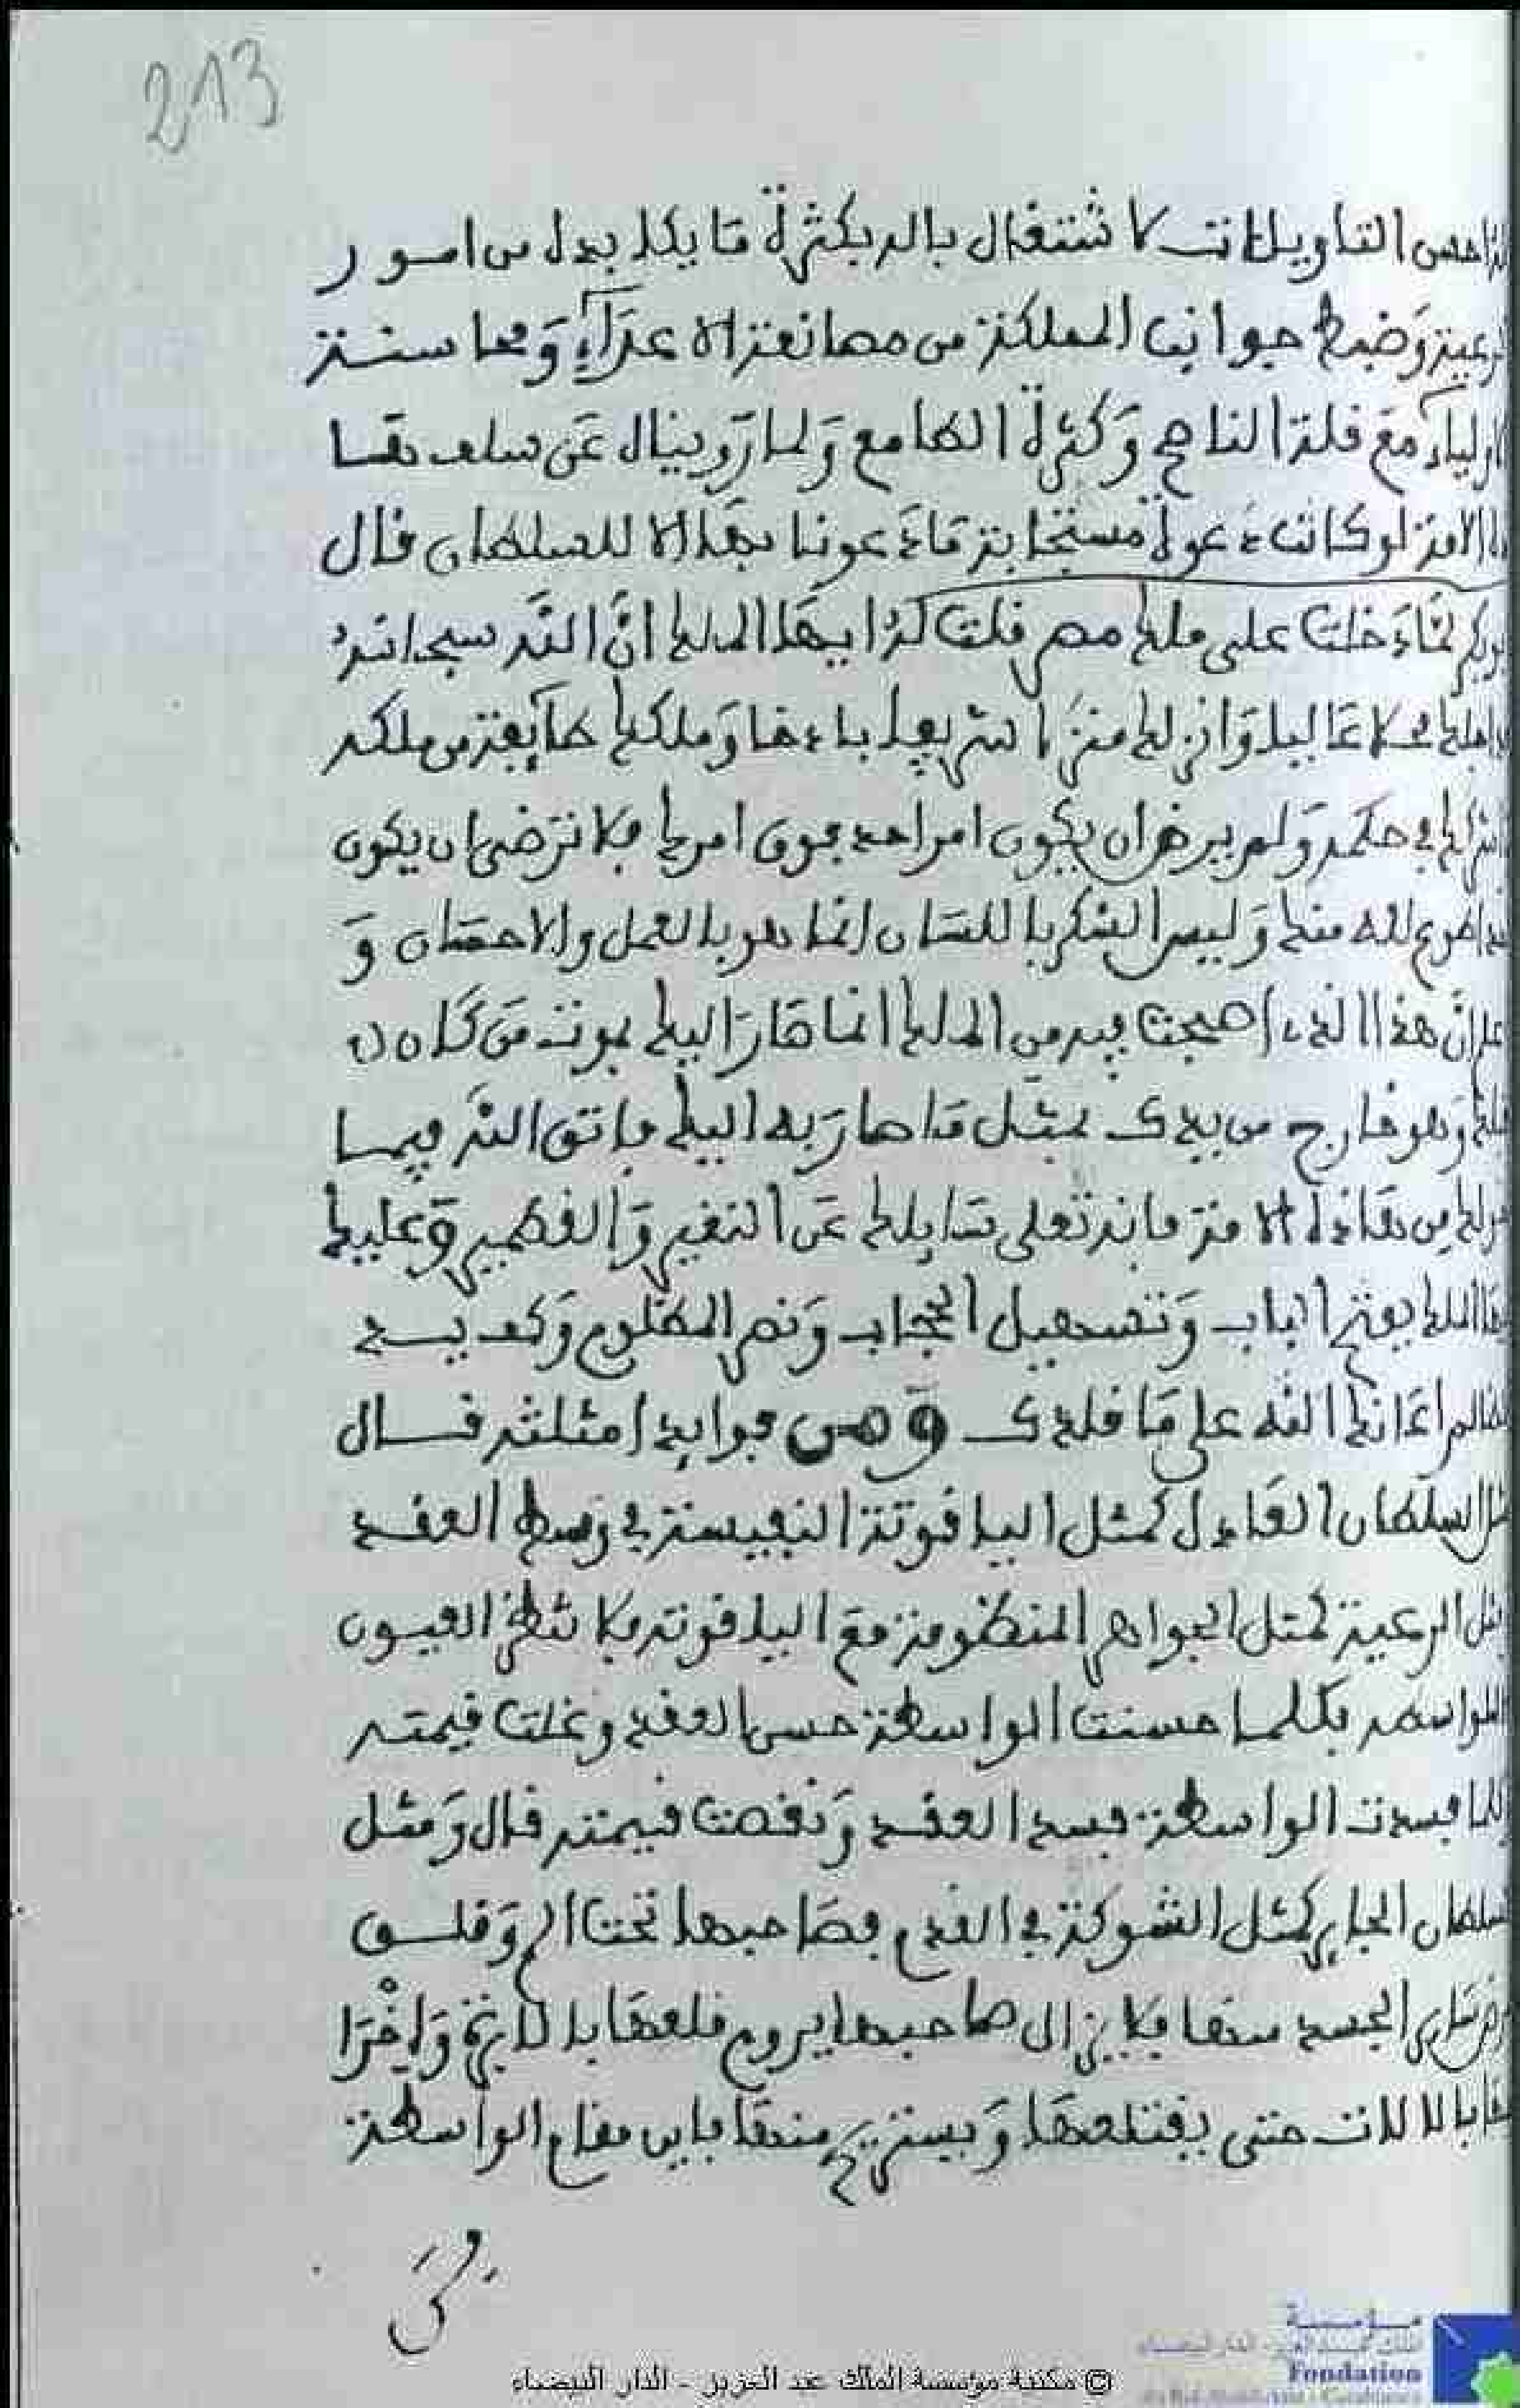 213
احسن التاويلات لاشتغال باله بكثرة ما يكابده من امور
الرعية وضبط جوانب المملكة من مصانعة الاعداء ومحاسنة
الاولياء مع قلة الناصح وكثرة الطامع ولما روينال عن سلف هقا
الامة لو كانت دعوة مستجابة ما دعونا بها الا للسلطان قال
بوبكر لما دخلت على ملك مصر قلت له ايها الملك ان الله سبحانه
احلك محلا عاليا وانزلك منزلا شريفا باذخا وملكك طايفة من ملكه
اشركك في حكمه ولم يرض ان يكون امر احد فوق امرك فلا ترض ان يكون
اطوع لله منك وليس الشكر باللسان انما هو بالعمل والاحسان و
علم ان هذا الذي اصبحت فيه من الملك انما صار اليك بموت من كان
قبلك وهو خارج من يدك بمثل ما صار به اليك فاتق الله فيما
خولك من هاذه الامة فانه تعلى سايلك عن النقير والقطمير وعليك
ايها الملك بفتح الباب وتسهيل الحجاب ونصر المظلوم وكف يد
الظالم اعانك الله على ما قلدك ومن فوايد امثلته قال
مثل السلطان العادل كمثل الياقوتة النفيسة في وسط العقد
مثل الرعية كمثل الجواهر المنظومة مع الياقوتة فلا تلحظ العيون
الا الواسطة فكلما حسنت الواسطة حسن العقد وغلت قيمته
كلما فسدت الواسطة فسد العقد ونقصت قيمته قال ومثل
السلطان الجاير كمثل الشوكة في القدم فصاحبها تحت الم وقلق
ساير الجسد منها فلا يزال صاحبها يروم قلعها بالابرة واخرا
بالالات حتى يقتلعها ويستريح منها فاين مقام الواسطة
من
مؤسسة
Fondation
© مكتبة مؤسسة الملك عبد العزيز - الدار البيضاء